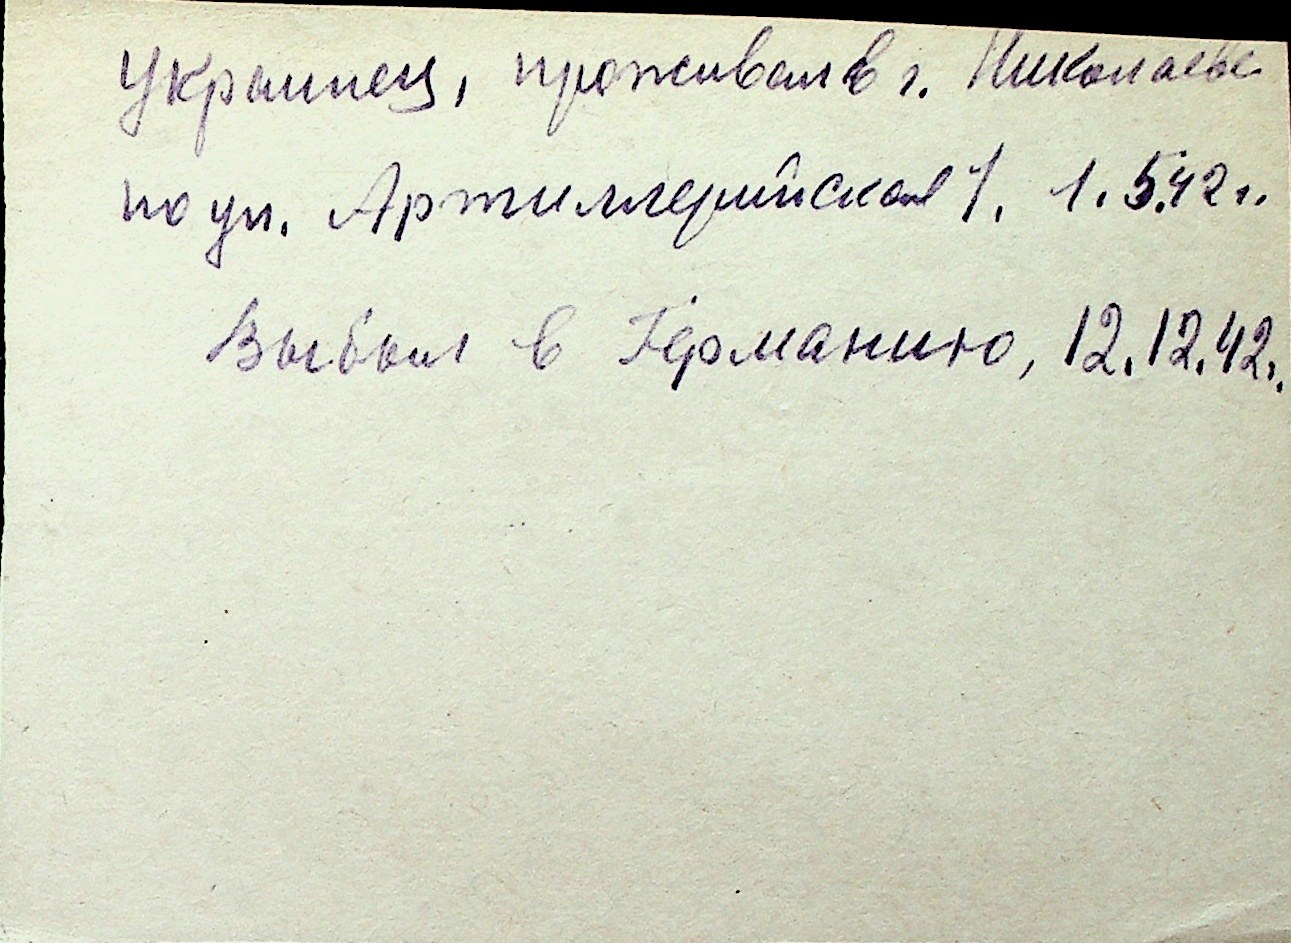 Украинец, проживал в г. Николаеве
по ул. Артиллерийская 1. 1.5.42 г.
Выбыл в Германию, 12.12.42 г.